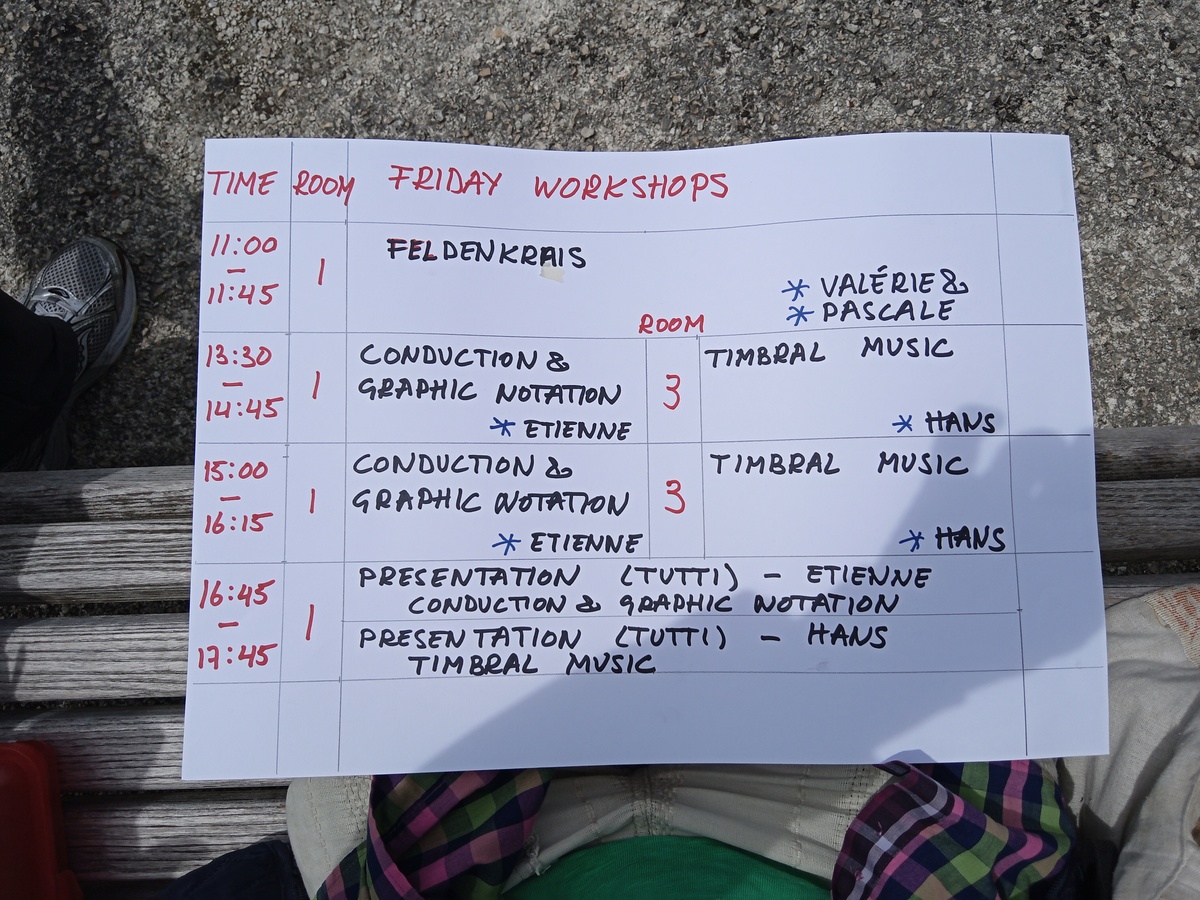 TIME ROOM FRIDAY WORKSHOPS
11:00
–
11:45
1
FELDENKRAIS
* VALÉRIE &
* PASCALE
ROOM
13:30
–
14:45
1
CONDUCTION &
GRAPHIC NOTATION
* ETIENNE
3
TIMBRAL MUSIC
* HANS
15:00
–
16:15
1
CONDUCTION &
GRAPHIC NOTATION
* ETIENNE
3
TIMBRAL MUSIC
* HANS
16:45
–
17:45
1
PRESENTATION (TUTTI) – ETIENNE
CONDUCTION & GRAPHIC NOTATION
PRESENTATION (TUTTI) – HANS
TIMBRAL MUSIC